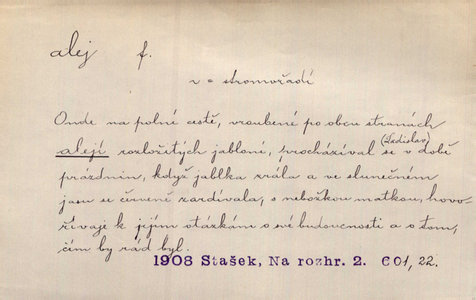 alej f.
v = stromořadí
Onde na polní cestě, vroubené po obou stranách
alejí rozložitých jabloní, procházíval se (Ladislav) v době
prázdnin, když jablka zrála a ve slunečném
jasu se červeně zardívala, s nebožkou matkou, hovo-
řívaje k jejím otázkám o své budoucnosti a o tom,
čím by rád byl.
1908 Stašek, Na rozhr. 2. 601, 22.